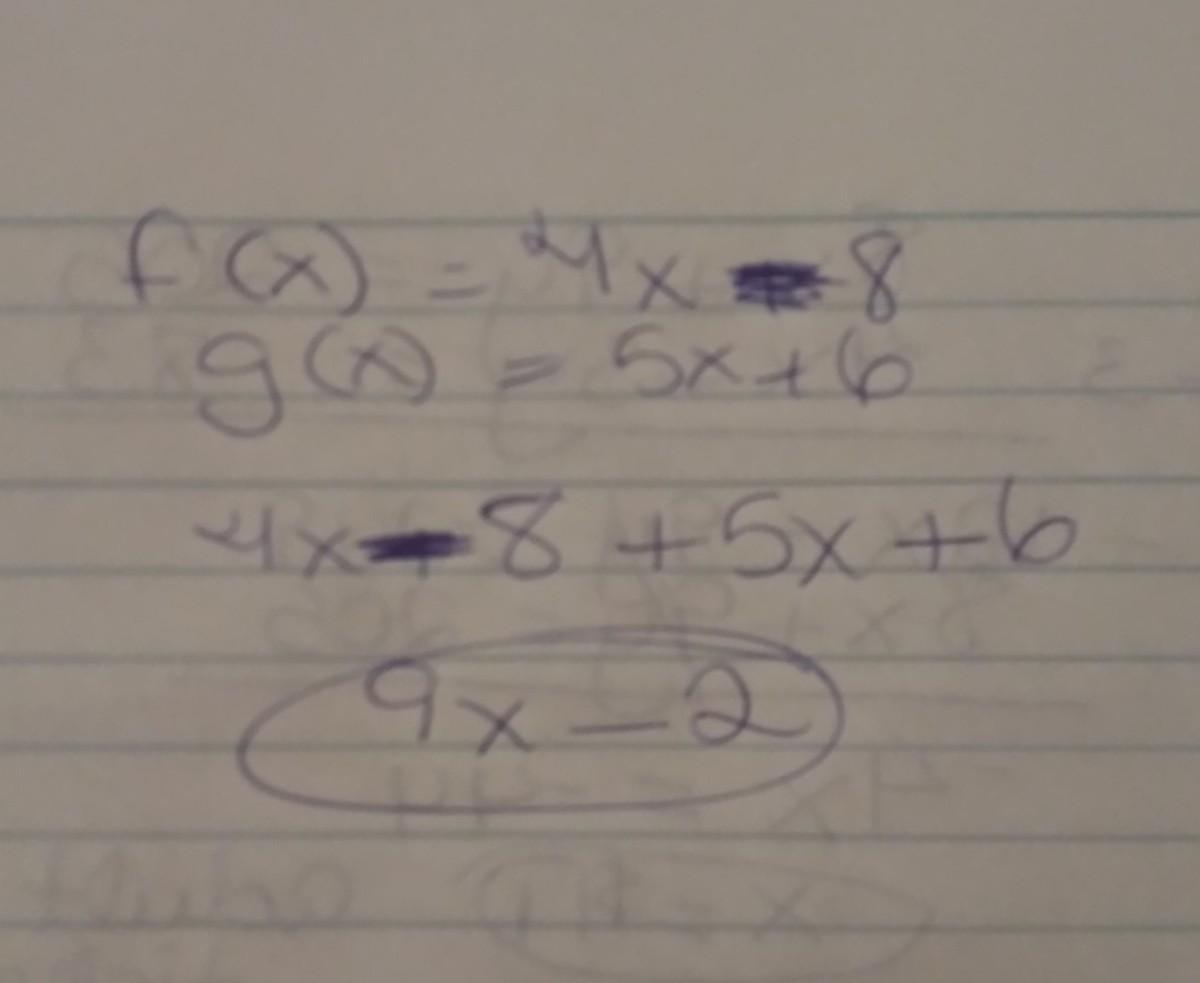 f(x) = 4x - 8
g(x) = 5x + 6
4x - 8 + 5x + 6
9x - 2